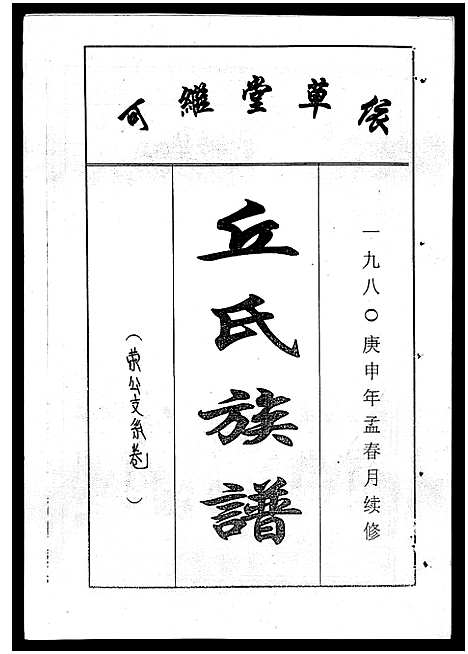 草堂維可
一九八〇庚申年孟春月续修
丘氏族譜
（荣公支系卷）